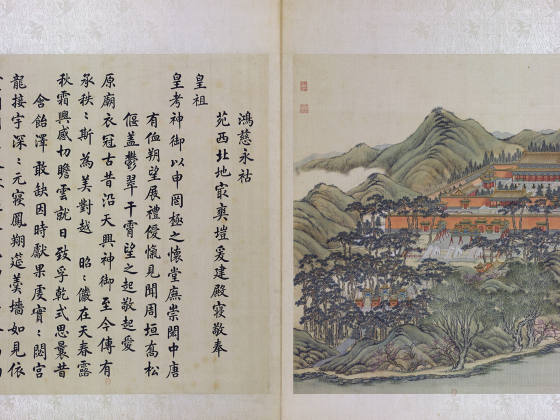 鴻慈永祜
苑西北地㝡爽塏爰建殿寢敬奉
皇祖
皇考神御以申罔極之懷堂廡崇閎中唐
有侐朔望展禮僾愾見聞周垣喬松
偃蓋鬱翠干霄望之起敬起愛
原廟衣冠古昔沿天興神御至今傳有
承秩〻斯為美對越 昭〻儼在天春露
秋霜興感切瞻雲就日致孚乾式思曩昔
含飴澤敢缺因時獻果虔實〻閟宮
龍接宇深〻元寢鳳翔筵羹墻如見依